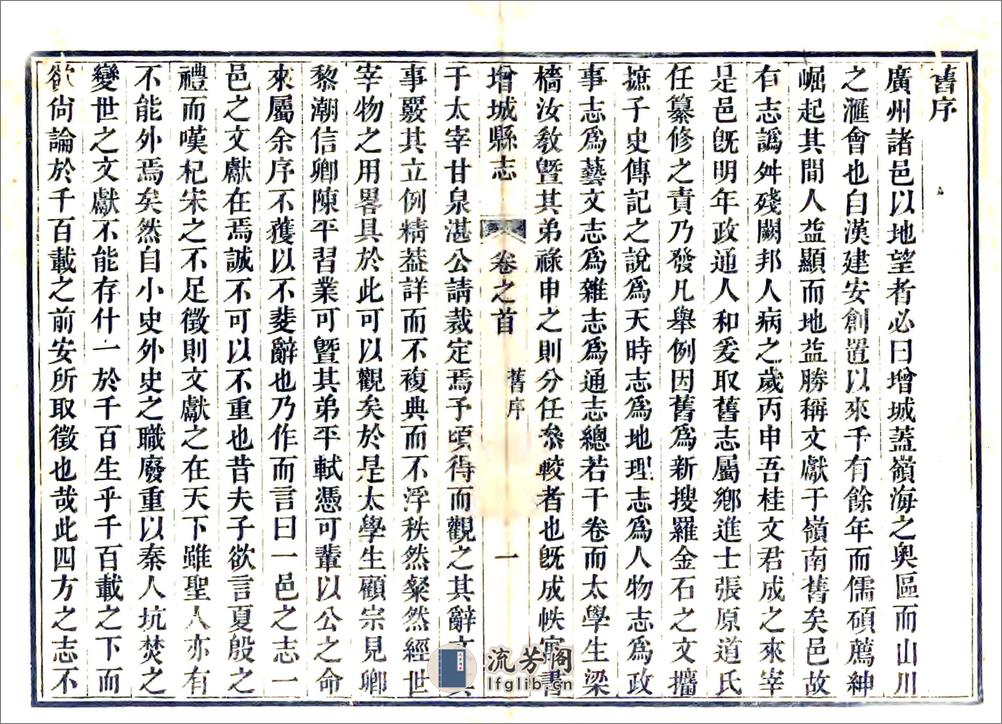 舊序
廣州諸邑以地望者必曰增城蓋嶺海之奧區而山川
之滙會也自漢建安創置以來千有餘年而儒碩薦紳
崛起其間人益顯而地益勝稱文獻于嶺南舊矣邑故
有志譌舛殘闕邦人病之歲丙申吾桂文君成之來宰
是邑旣明年政通人和爰取舊志屬鄉進士張原道氏
任纂修之責乃發凡舉例因舊爲新搜羅金石之文攟
摭子史傳記之說爲天時志爲地理志爲人物志爲政
事志爲藝文志爲雜志爲通志總若干卷而太學生梁
檣汝敎曁其弟祿申之則分任叅較者也旣成帙寅書
增城縣志 卷之首 舊序 一
于太宰甘泉湛公請裁定焉予頃得而觀之其辭文其
事覈其立例精葢詳而不複典而不浮秩然粲然經世
宰物之用畧具於此可以觀矣於是太學生顧宗見卿
黎潮信卿陳平習業可曁其弟平軾憑可輩以公之命
來屬余序不獲以不斐辭也乃作而言曰一邑之志一
邑之文獻在焉誠不可以不重也昔夫子欲言夏殷之
禮而嘆杞宋之不足徵則文獻之在天下雖聖人亦有
不能外焉矣然自小史外史之職廢重以秦人坑焚之
變世之文獻不能存什一於千百生乎千百載之下而
欲尙論於千百載之前安所取徵也哉此四方之志不
流芳阁
lfglib.cn